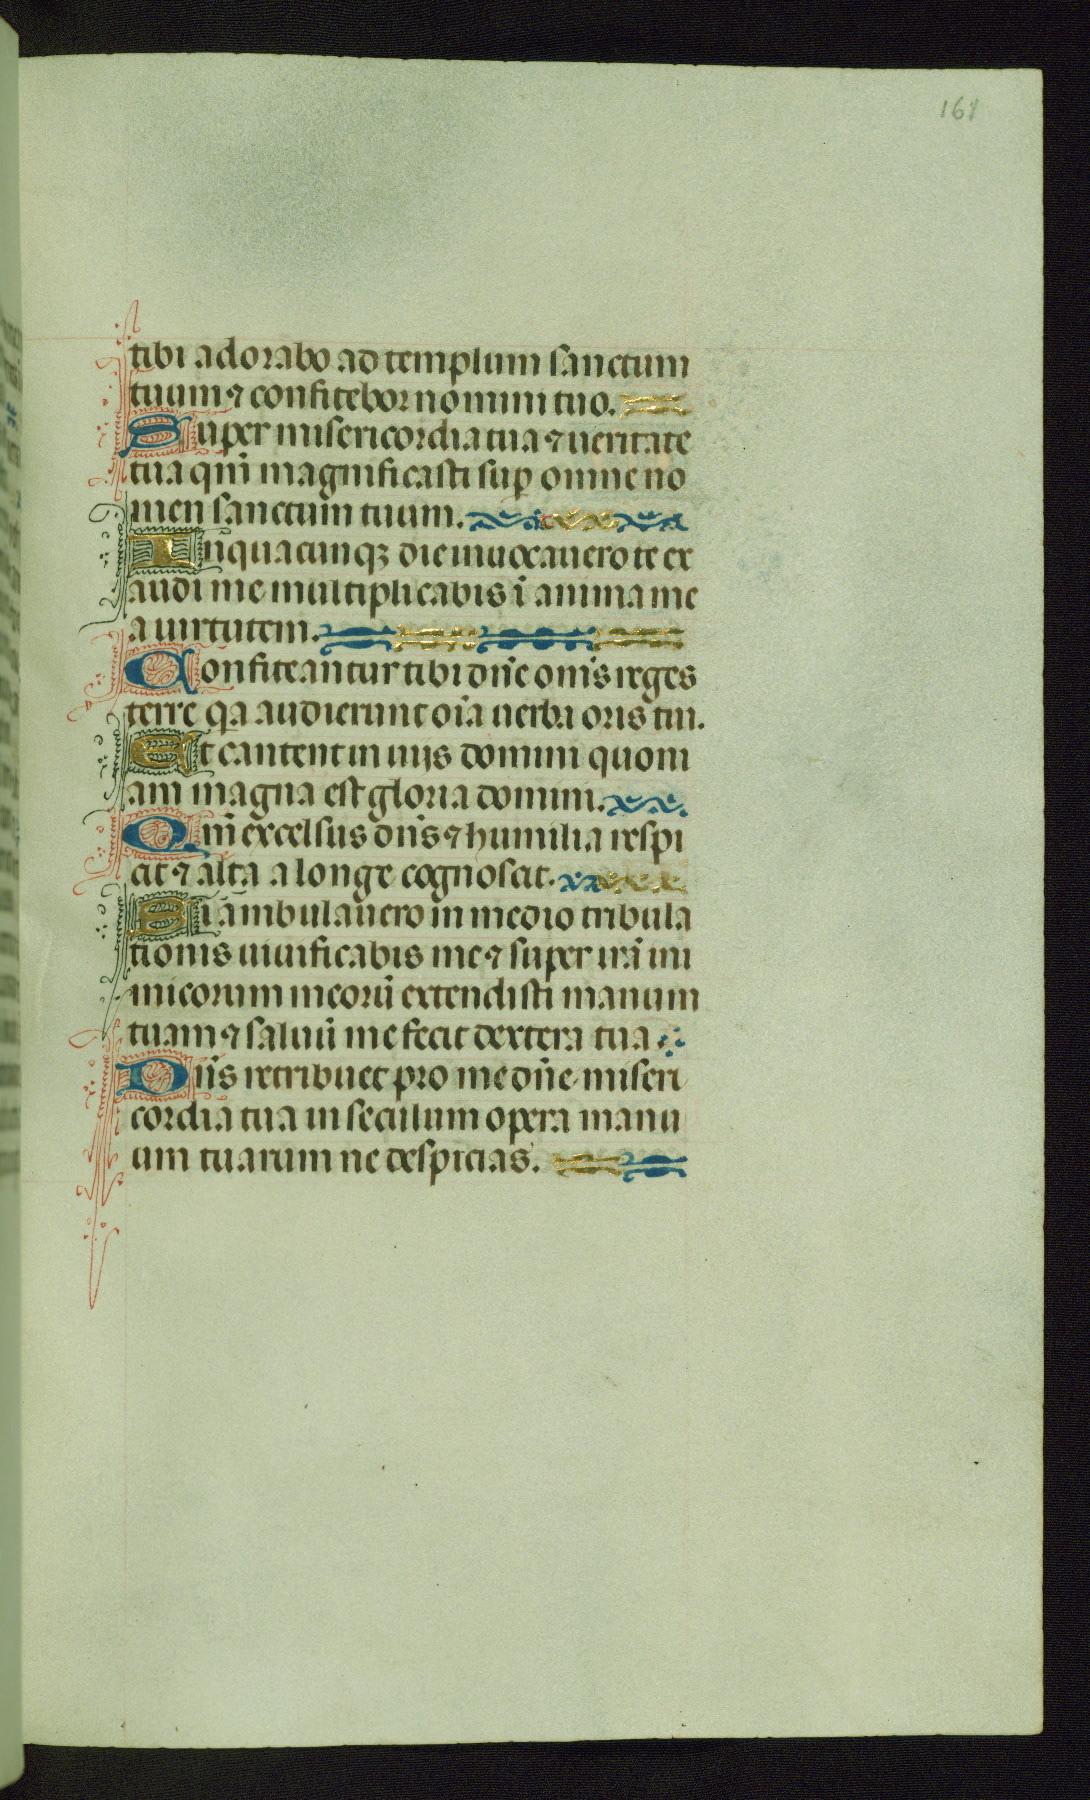 161
tibi adorabo ad templum sanctum
tuum ⁊ confitebor nomini tuo.
Super misericordia tua ⁊ ueritate
tua qm̄ magnificasti sup̱ omne no
men sanctum tuum.
Inquacunqꝫ die inuocauero te ex
audi me multiplicabis ī anima me
a uirtutem.
Confiteantur tibi dn̄e om̄s reges
terre qa audierunt oīa uerba oris tui.
Et cantent in uijs domini quoni
am magna est gloria domini.
Qm̄ excelsus dn̄s ⁊ humilia respi
cit ⁊ alta a longe cognoscit.
Si ambulauero in medio tribula
tionis uiuificabis me ⁊ super irā ini
micorum meorū extendisti manum
tuam ⁊ saluū me fecit dextera tua
Dn̄s retribuet pro me dn̄e miseri
cordia tua in seculum opera manu
um tuarum ne despicias.